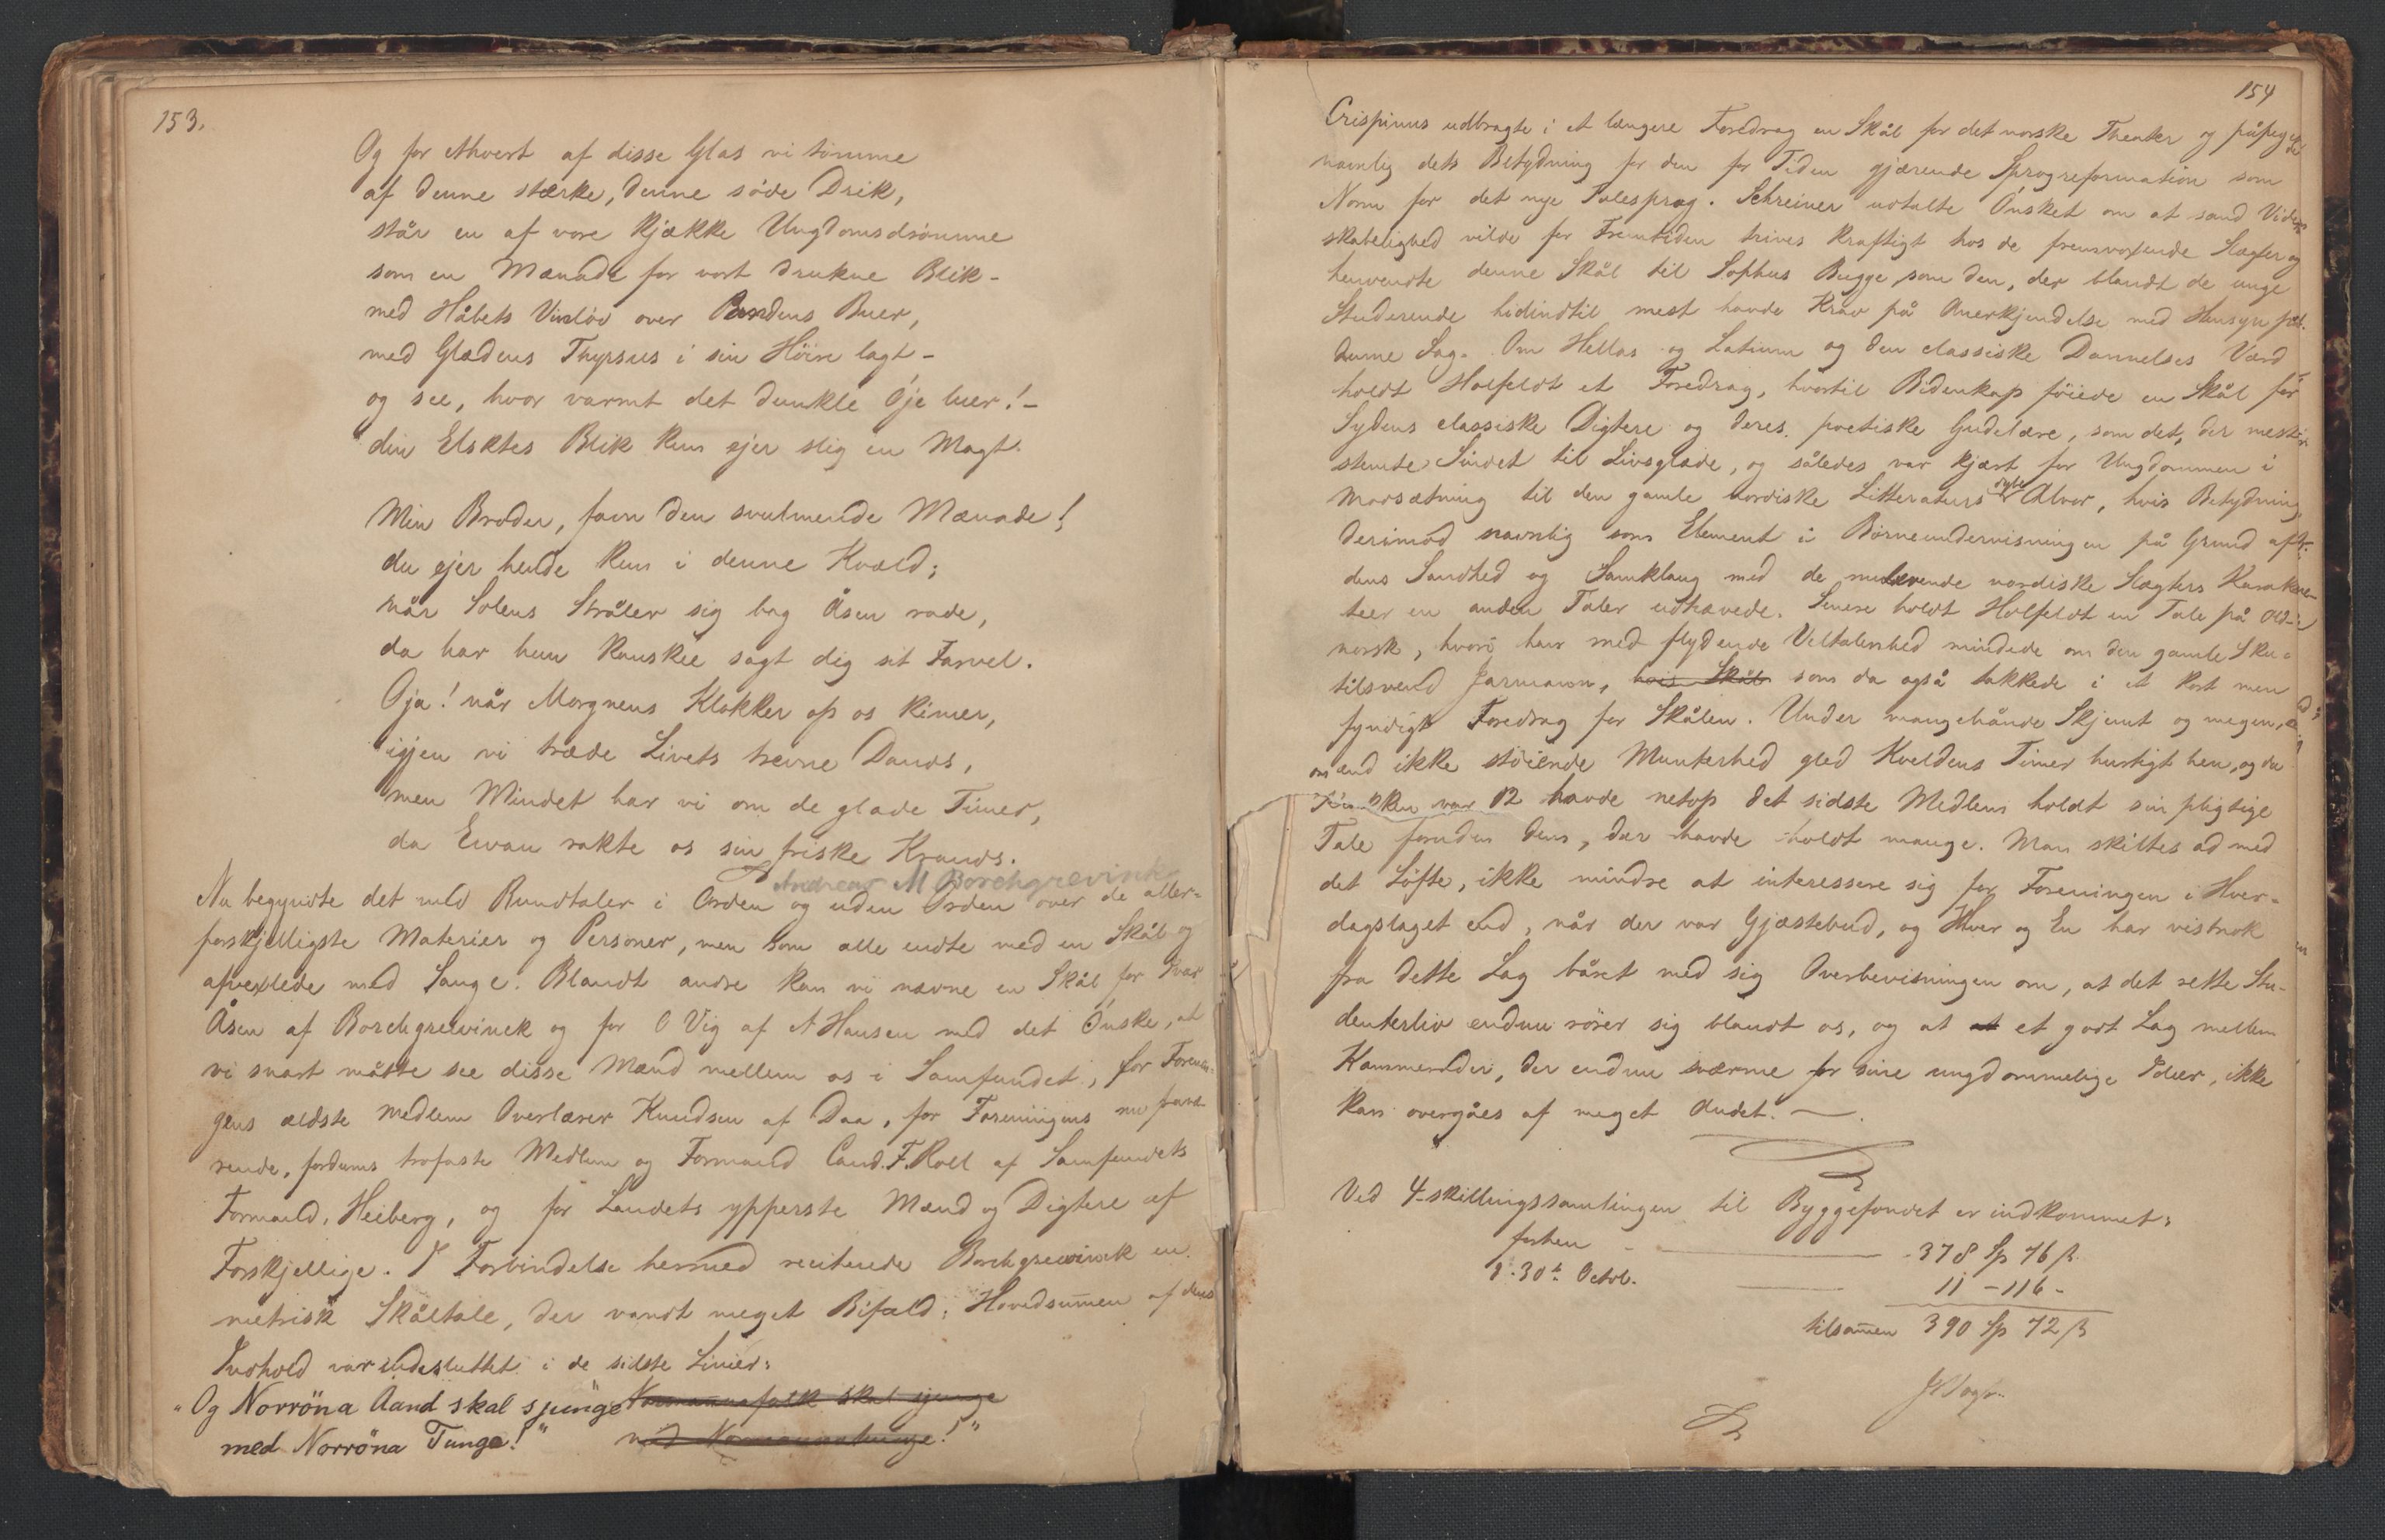 153.
Og for Ahvert af disse Glas vi tömme
af denne stærke, denne söde Drik,
står en af vore kjække Ungdomsdrömme
som en Mænade for vort drukne Blik -
med Håbets Vinlöv over Pandens Buer,
med Glædens Thyrsus i sin Höire lagt -
og see, hvor varmt det dunkle Öje luer! -
din Elsktes Blik kun ejer slig en Magt.
Min Broder, favn den svulmende Mænade!
du ejer hende kun i denne Kvæld;
når Solens Stråler sig bag Åsen rade,
da har hun kanskee sagt dig sit Farvel.
Oja! når Morgnens Klokker op os kimer,
igjen vi træde Livets trevne Dands,
men Mindet har vi om de glade Timer,
da Evan rakte os sin friske Krands.
Andreas M Borchgrevink
Nu begyndte det med Rundtaler i Orden og uden Orden over de aller-
forskjelligste Materier og Personer, men som alle endte med en Skål og
afvexlede med Sange. Blandt andre kan vi nævne en Skål for Ivar
Åsen af Borchgrewinck og for O Vig af A Hansen med det Önske, at
vi snart måtte see disse Mænd mellem os i Samfundet, for Forenin-
gens ældste Medlem Overlærer Knudsen af Daa, for Foreningens nu fravæ-
rende, fordums trofaste Medlem og Formand Cand. F. Roll af Samfundets
Formand, Heiberg, og for Landets ypperste Mænd og Digtere af
Forskjellige. I Forbindelse hermed reciterede Borchgrewinck en
metrisk Skåltale, der vandt meget Bifald; Hovedsummen af dens
Indhold var indesluttet i de sidste Linier:
"Og Norröna Aand skal sjunge Normannafolk skal sjunge
med Norröna Tunge!" med Normannatunge!"
154
Crispinus udbragte i et længere Foredrag en Skål for det norske Theater og påpegede
navnlig dets Betydning for den for Tiden gjærende Sprogreformation som
Norm for det nye Talesprog. Schreiner udtalte Önsket om at sand Viden-
skabelighed vilde for Fremtiden trives kraftigt hos de fremvoxende Slægter og
henvendte denne Skål til Sophus Bugge, som den, der blandt de unge
Studerende hidindtil mest havde Krav på Anerkjendelse med Hensyn på
denne Sag. Om Hellas og Latium og den classiske Dannelses Værd
holdt Holfeldt et Foredrag, hvortil Bidenkap föiede en Skål for
Sydens classiske Digtere og deres poetiske Gudelære, som det, der mest
stemte Sindet til Livsglæde, og således var kjært for Ungdommen i
Modsætning til den gamle nordiske Litteraturs dybe Alvor, hvis Betydning
derimod navnlig som Element i Börneundervisningen på Grund af
dens Sandhed og Samklang med de nulevende nordiske Slægters Karak-
teer en anden Taler udhævede. Senere holdt Holfeldt en Tale på Old-
norsk, hvori han med flydende Veltalenhed mindede om den gamle Sku-
tilsvend Jarmann, hvis Skål som da også takkede i et kort men
fyndigt Foredrag for Skålen. Under mangehånde Skjemt og megen,
om end ikke støiende Munterhed gled Kveldens Timer hurtigt hen, og da
Klokken var 12 havde netop det sidste Medlem holdt sin pligtige
Tale foruden dem, der havde holdt mange. Man skiltes ad med
det Löfte, ikke mindre at interessere sig for Foreningen i Hver-
dagslaget end, når der var Gjæstebud, og Hver og En har vistnok
fra dette Lag båret med sig Overbevisningen om, at det rette Stu-
denterliv endnu rörer sig blandt os, og at at et godt Lag mellem
Kammerader, der endnu sværme for sine ungdommelige Ideer, ikke
kan overgåes af meget Andet. —.
Ved 4-skillingssamlingen til Byggefondet er indkommet:
forhen - 378 Sp 76 β
d. 30te Octob. 11 - 116 -
tilsamen 390 Sp 72 β